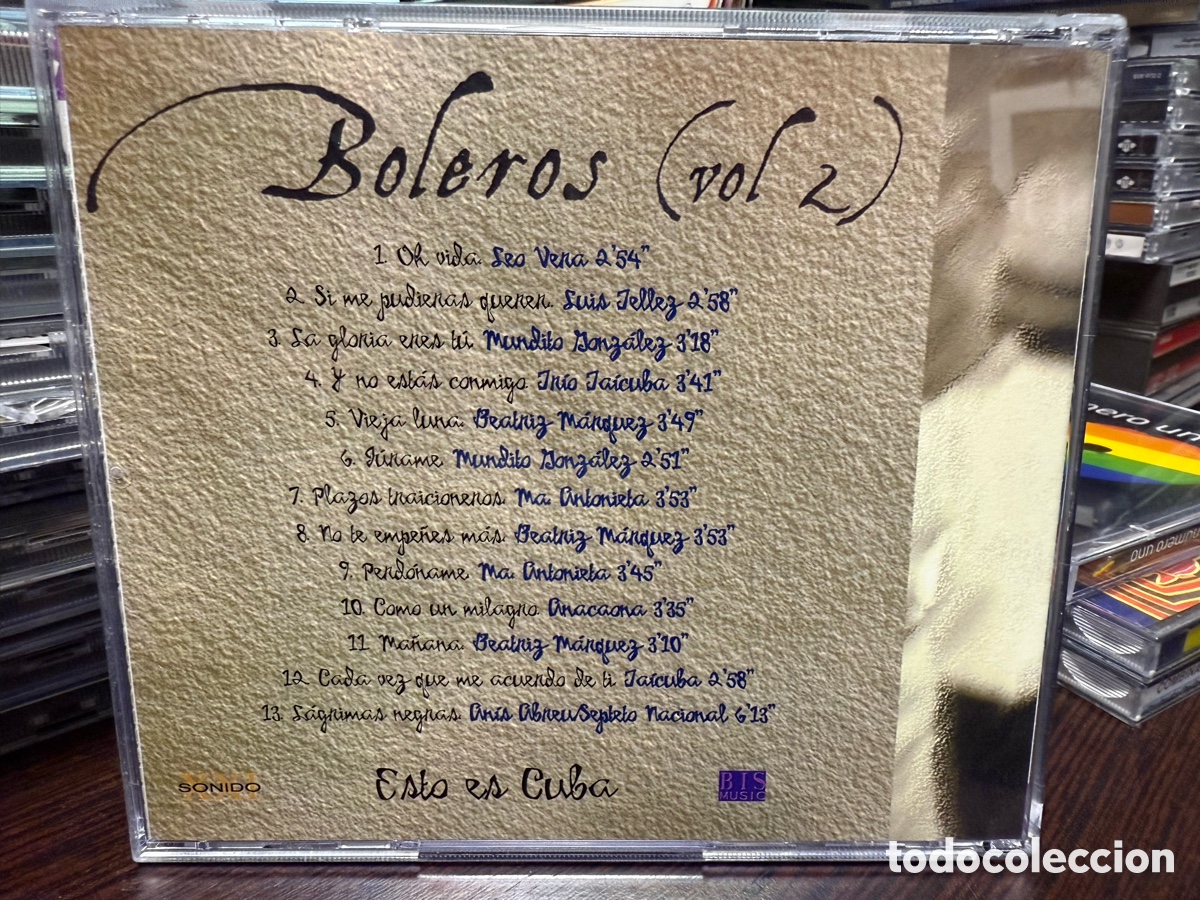 Boleros (vol 2)
1. Oh vida. Leo Vera 2'54"
2. Si me pudieras querer. Luis Tellez 2'58"
3. La gloria eres tú. Mundito González 3'18"
4. Y no estás conmigo. Trío Taícuba 3'41"
5. Vieja luna. Beatriz Márquez 3'49"
6. Júrame. Mundito González 2'51"
7. Plazos traicioneros. Ma. Antonieta 3'53"
8. No te empeñes más. Beatriz Márquez 3'53"
9. Perdóname. Ma. Antonieta 3'45"
10. Como un milagro. Anacaona 3'35"
11. Mañana. Beatriz Márquez 3'10"
12. Cada vez que me acuerdo de ti. Taícuba 2'58"
13. Lágrimas negras. Anís Abreu/Septeto Nacional 6'13"
SONIDO
Esto es Cuba
BIS
MUSIC
numero uno
todocoleccion